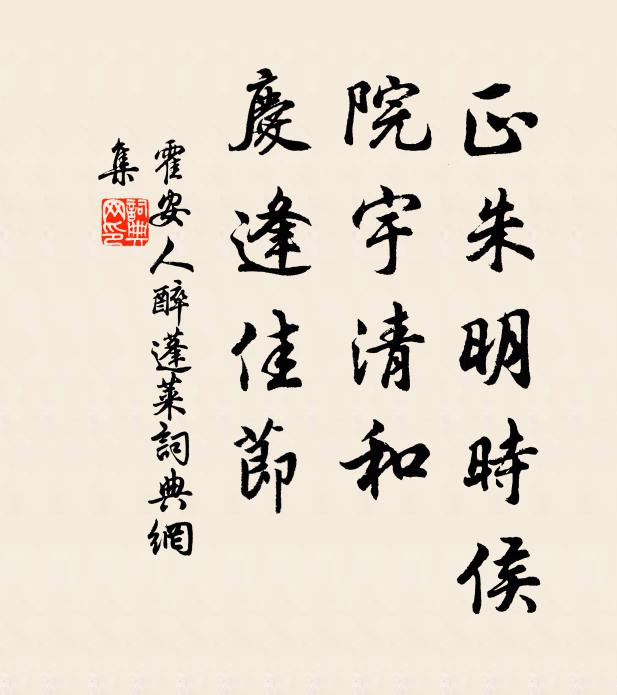 正朱明時侯
院宇清和
慶逢佳節
霍安人醉蓬萊詞典網
集
詞典
网印